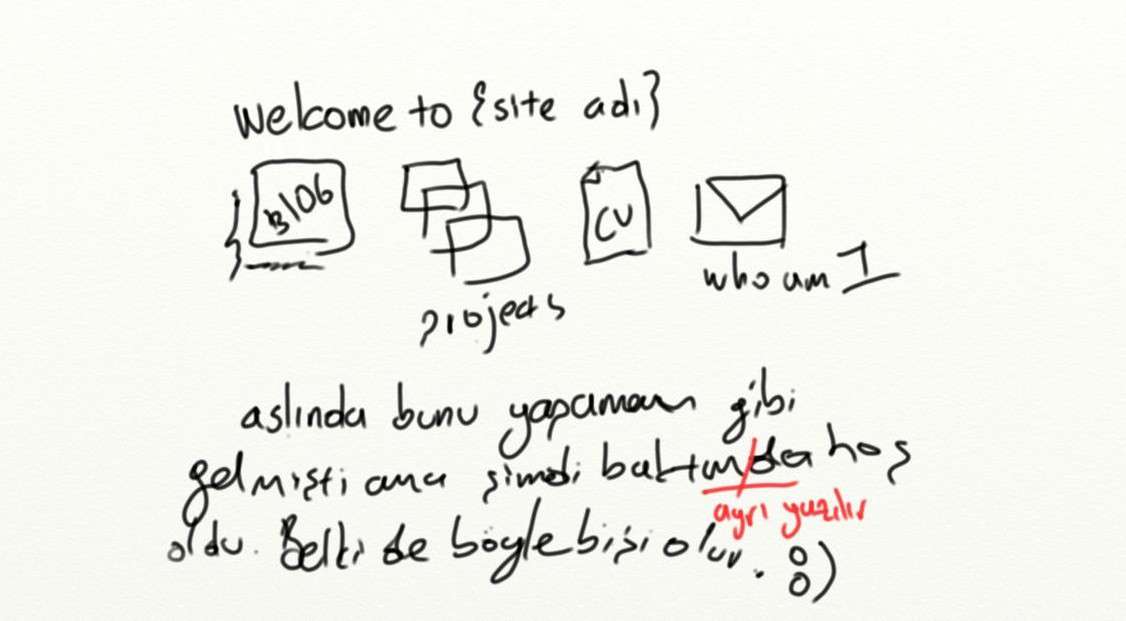 welcome to {site adı}
Blog
CV
who am I
projects
aslında bunu yapamam gibi
gelmişti ama şimdi baktımda hoş
ayrı yazılır
oldu. Belki de böyle bişi olur. :)